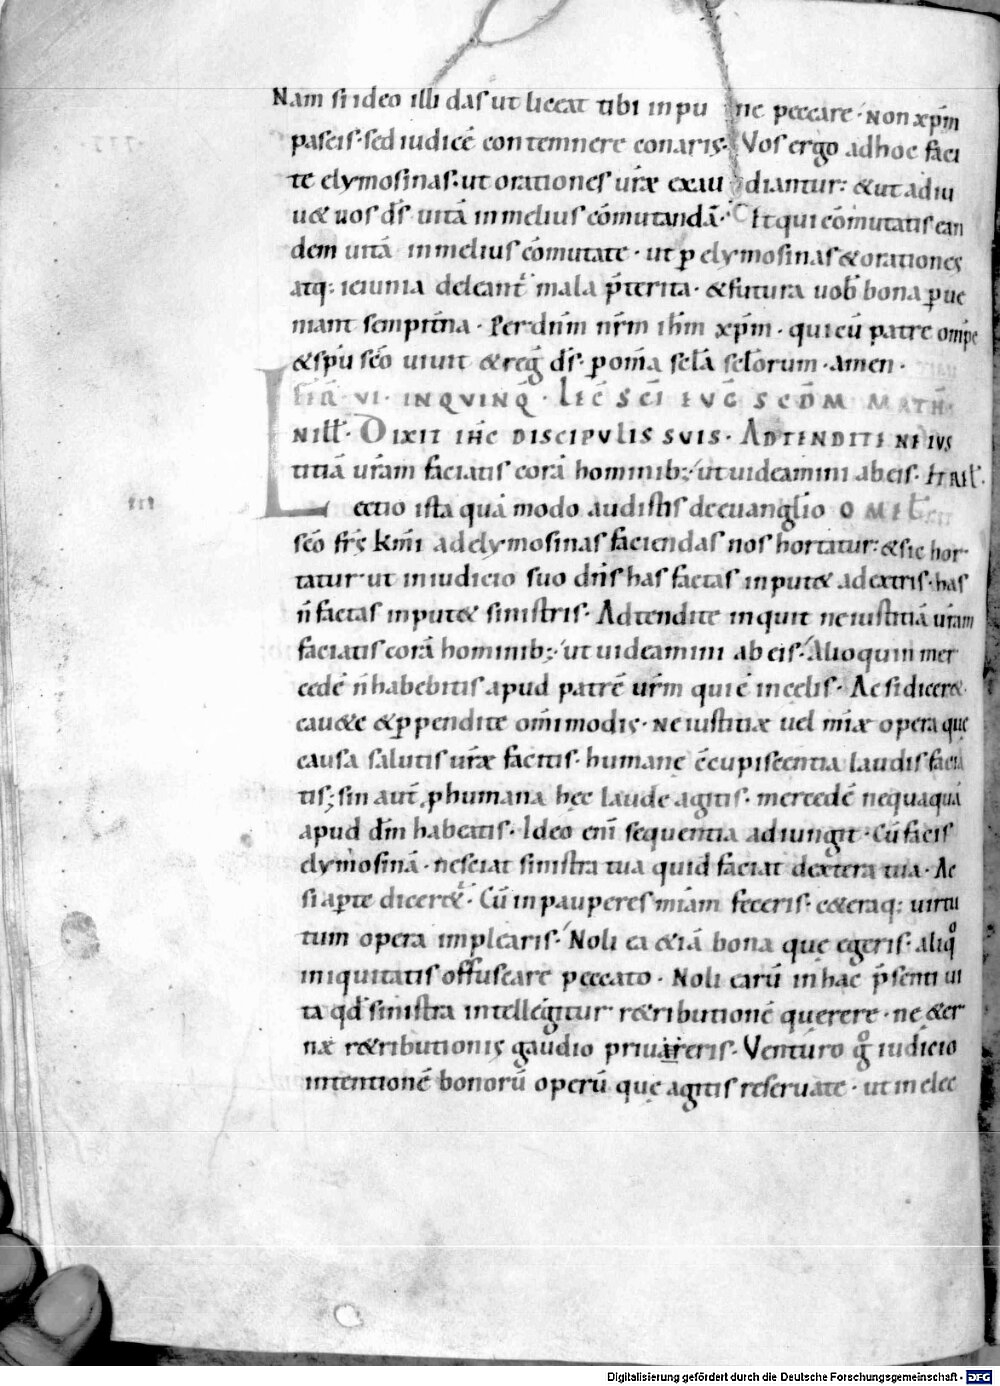 Nam si ideo illi das ut liceat tibi inpune peccare· Non xp̄m
pascis· sed iudicē contemnere conaris· Vos ergo adhoc faci
te elymosinas· ut orationes ur̄æ exaudiantur: &ut adiu
u& uos d̄s uitā inmelius cōmutandā· Et qui cōmutatis ean
dem uitā inmelius cōmutate· ut p elymosinas &orationes
atq: ieiunia deleant̄ mala p̄terita· &futura uob̄ bona pue
niant sempit̄na· Per dn̄m nr̄m ih̄m xp̄m· qui cū patre om̄pe
&sp̄u sc̄o uiuit &reḡ d̄s· p om̄a scl̄a scl̄orum· amen·
FR̄A· VI· IN QVINQ̄· LEC̄ SC̄I EVḠ SCD̄M MATH̄·
N ill̄· Dixit ih̄c discipulis suis· Adtendite ne ius
titiā ur̄am faciatis corā hominib;· ut uideamini ab eis· & rel̄·
Lectio ista quā modo audistis de euanglio OMEL̄
sc̄o fr̄s km̄i ad elymosinas faciendas nos hortatur: & sic hor
tatur· ut in iudicio suo dn̄s has factas input& ad extris· has
n̄ factas input& sinistris· Adtendite inquit ne iustitiā ur̄am
faciatis corā hominib;· ut uideamini ab eis· Alioquin mer
cedē n̄ habebitis apud patrē ur̄m qui ē in celis· Ac si dicer&·
cau&e &ppendite om̄imodis· ne iustitiæ uel mi̅æ opera quę
causa salutis ur̄æ facitis· humanę c̄cupiscentia laudis facia
tis; sin aut̄ p humana hęc laude agitis· mercedē nequaquā
apud dm̄ habeatis· Ideo eni̅ sequentia adiungit· Cū facis
elymosinā· nesciat sinistra tua quid faciat dextera tua· Ac
si apte dicer&· Cū in pauperes miā̄m feceris· c&eraq: uirtu
tum opera implearis· Noli ea &iā bona quę egeris· aliqo
iniquitatis offuscare peccato· Noli earū in hac p̄senti ui
ta qd̄ sinistra intellegitur r&ributionē querere· ne &er
næ r&ributionis gaudio priuareris· Venturo g̊ iudicio
intentionē bonorū operū quę agitis reseruate· ut in elec
Digitalisierung gefördert durch die Deutsche Forschungsgemeinschaft - DFG